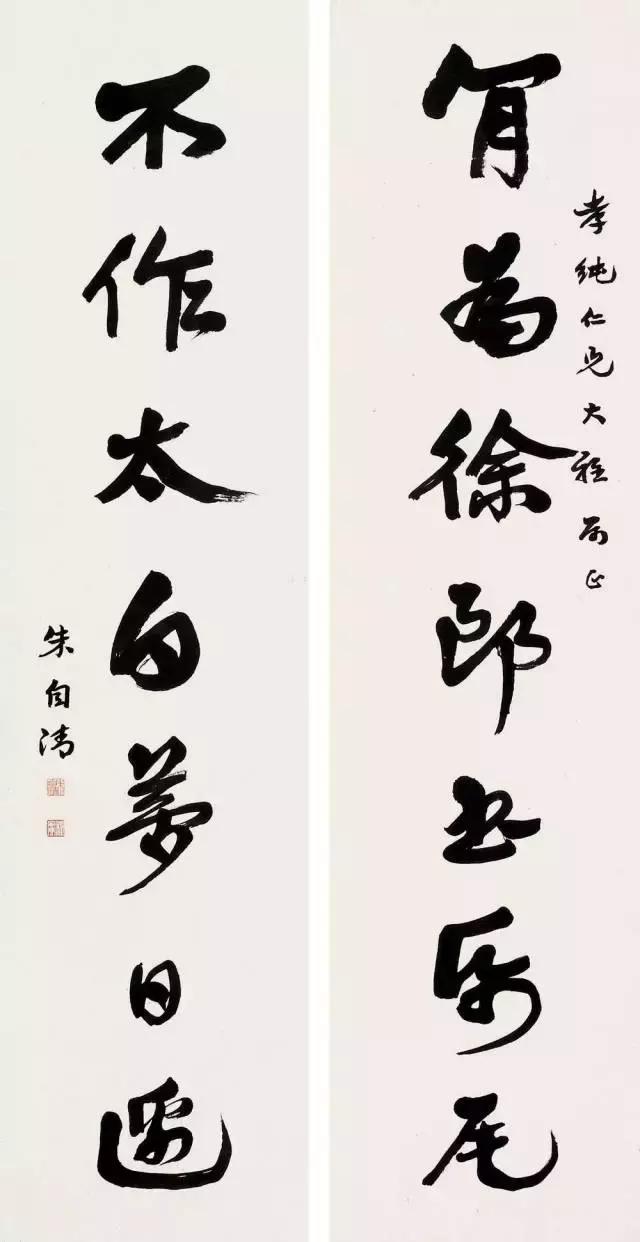 孝純仁兄大雅属正
肎為徐郎書帋尾
不作太白夢日邊
朱自清